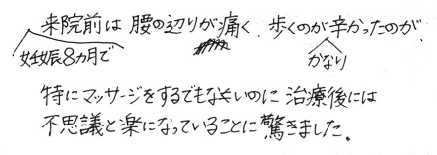 来院前は 腰の辺りが痛く、歩くのが辛かったのが、
妊娠8ヵ月で
かなり
特にマッサージをするでもないのに 治療後には
不思議と楽になっていることに驚きました。